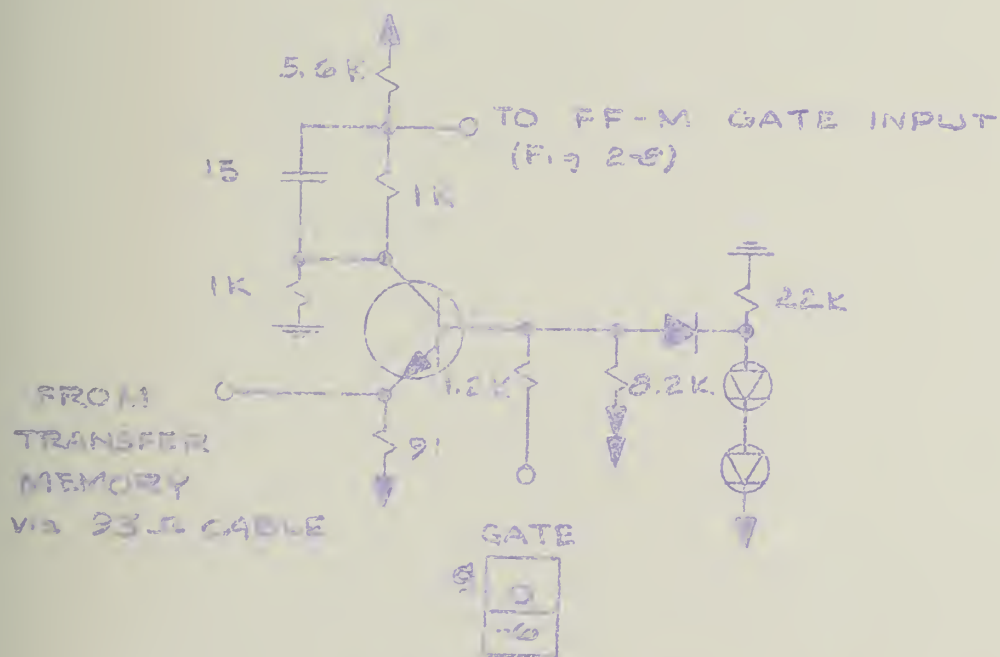 5.6K
TO FF-M GATE INPUT
(Fig 2-8)
15
1K
1K
22K
1.2K
8.2K
FROM
TRANSFER
MEMORY
via 93Ω CABLE
91
GATE
0
-6